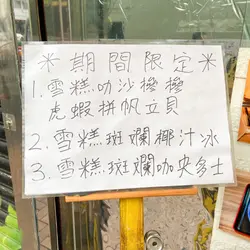 *期間限定*
1.雪糕叻沙撈撈
虎蝦拼帆立貝
2.雪糕斑斕椰汁冰
3.雪糕斑斕咖央多士